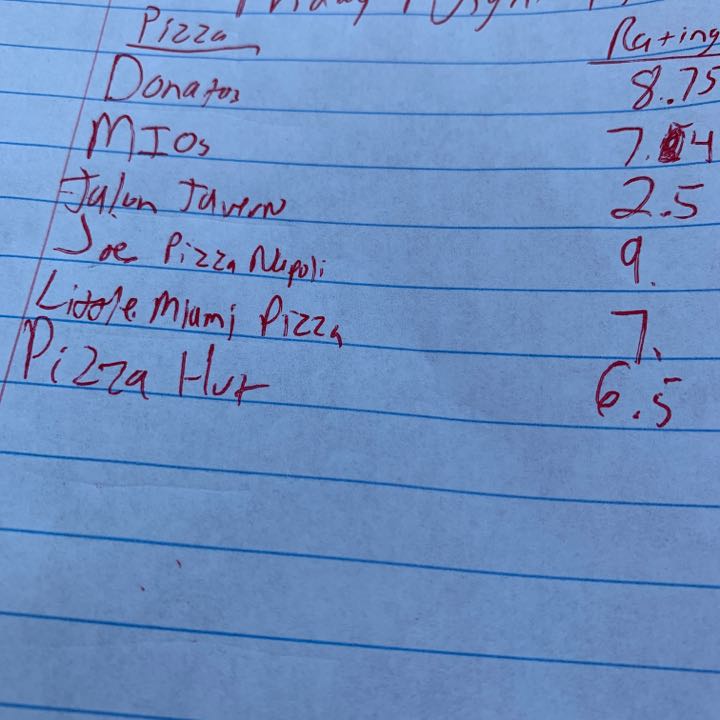 Friday Night
Pizza Rating
Donatos 8.75
MIOs 7.4
Jalon Tavern 2.5
Joe Pizza Napoli 9.
Little Miami Pizza 7.
Pizza Hut 6.5